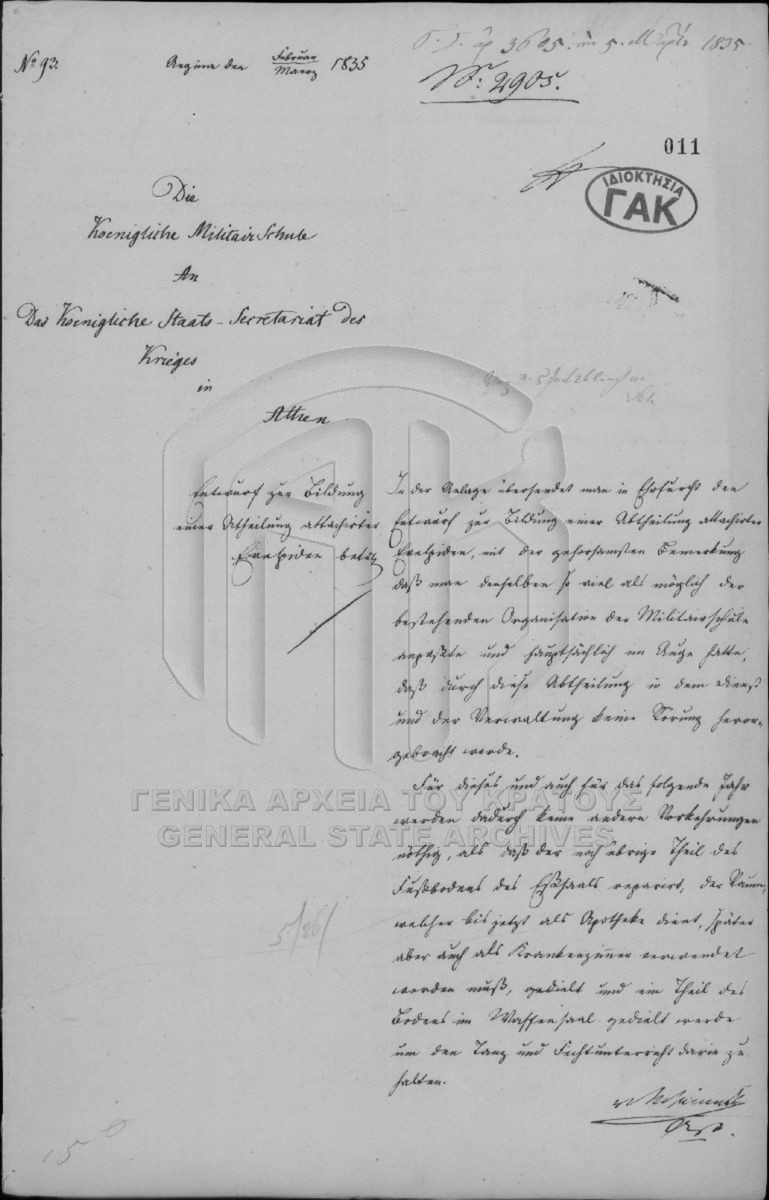 Nº 93.
Aegina den Februar/Maerz 1835
3605. 5. 1835.
Nº: 2905.
011
ΙΔΙΟΚΤΗΣΙΑ
ΓΑΚ
Die
Koenigliche Militair Schule
An
Das Koenigliche Staats-Secretariat des
Krieges
in
Athen
Entwurf zur Bildung
einer Abtheilung attachirter
Evelpiden betr.
In der Anlage übersendet man in Ehrfurcht den
Entwurf zur Bildung einer Abtheilung attachirter
Evelpiden, mit der gehorsamsten Bemerkung
daß man denselben so viel als möglich der
bestehenden Organisation der Militairschule
anpaßte und hauptsächlich im Auge hatte,
daß durch diese Abtheilung in dem Dienst
und der Verwaltung keine Störung hervor-
gebracht werde.
Für dieses und auch für das folgende Jahr
werden dadurch keine andern Vorkehrungen
nöthig, als daß der noch übrige Theil des
Fußbodens des Eßsaals reparirt, der Raum,
welcher bis jetzt als Apotheke dient, später
aber auch als Krankenzimmer verwendet
werden muß, gedielt und ein Theil des
Bodens im Waffensaal gedielt werde
um den Tanz und Fechtunterricht darin zu
halten.
5/26/
15
ΓΕΝΙΚΑ ΑΡΧΕΙΑ ΤΟΥ ΚΡΑΤΟΥΣ
GENERAL STATE ARCHIVES